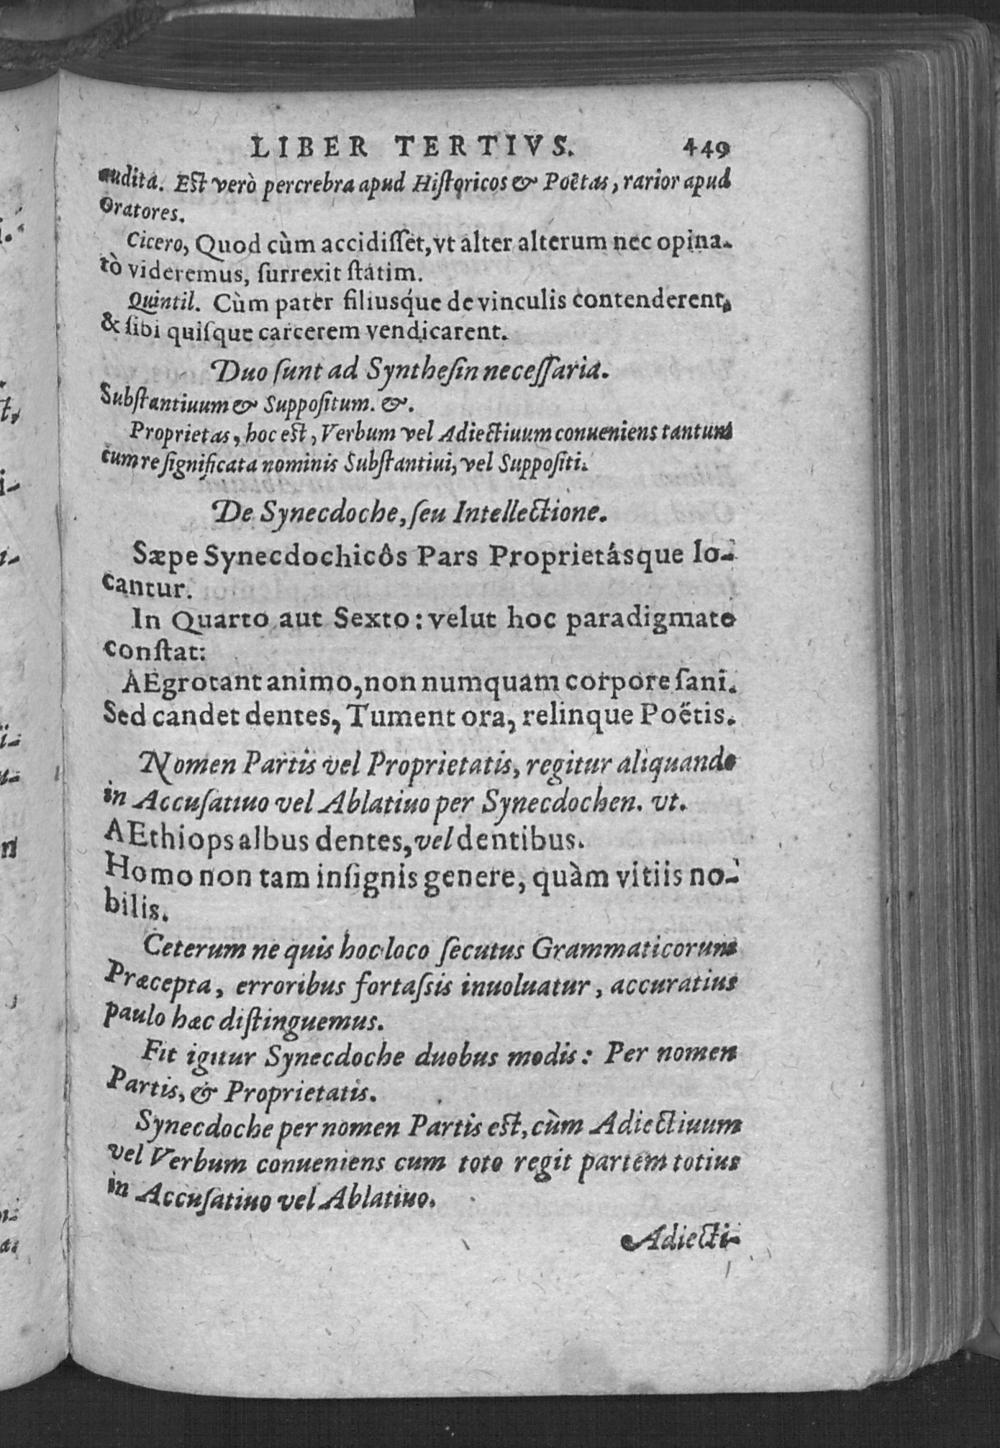 LIBER TERTIVS. 449
audita. Est verò percrebra apud Historicos & Poëtas, rarior apud
Oratores.
Cicero, Quod cùm accidisset, vt alter alterum nec opina-
tò videremus, surrexit statim.
Quintil. Cùm pater filiusq́ue de vinculis contenderent,
& sibi quisque carcerem vendicarent.
Duo sunt ad Synthesin necessaria.
Substantiuum & Suppositum. &.
Proprietas, hoc est, Verbum vel Adiectiuum conueniens tantum
cum re significata nominis Substantiui, vel Suppositi.
De Synecdoche, seu Intellectione.
Sæpe Synecdochicôs Pars Proprietásque lo-
cantur.
In Quarto aut Sexto: velut hoc paradigmate
constat:
AEgrotant animo, non numquam corpore sani.
Sed candet dentes, Tument ora, relinque Poëtis.
Nomen Partis vel Proprietatis, regitur aliquando
in Accusatiuo vel Ablatiuo per Synecdochen. vt.
AEthiops albus dentes, vel dentibus.
Homo non tam insignis genere, quàm vitiis no-
bilis.
Ceterum ne quis hoc loco secutus Grammaticorum
Præcepta, erroribus fortassis inuoluatur, accuratius
paulo hæc distinguemus.
Fit igitur Synecdoche duobus modis: Per nomen
Partis, & Proprietatis.
Synecdoche per nomen Partis est, cùm Adiectiuum
vel Verbum conueniens cum toto regit partem totius
in Accusatiuo vel Ablatiuo.
Adiecti-